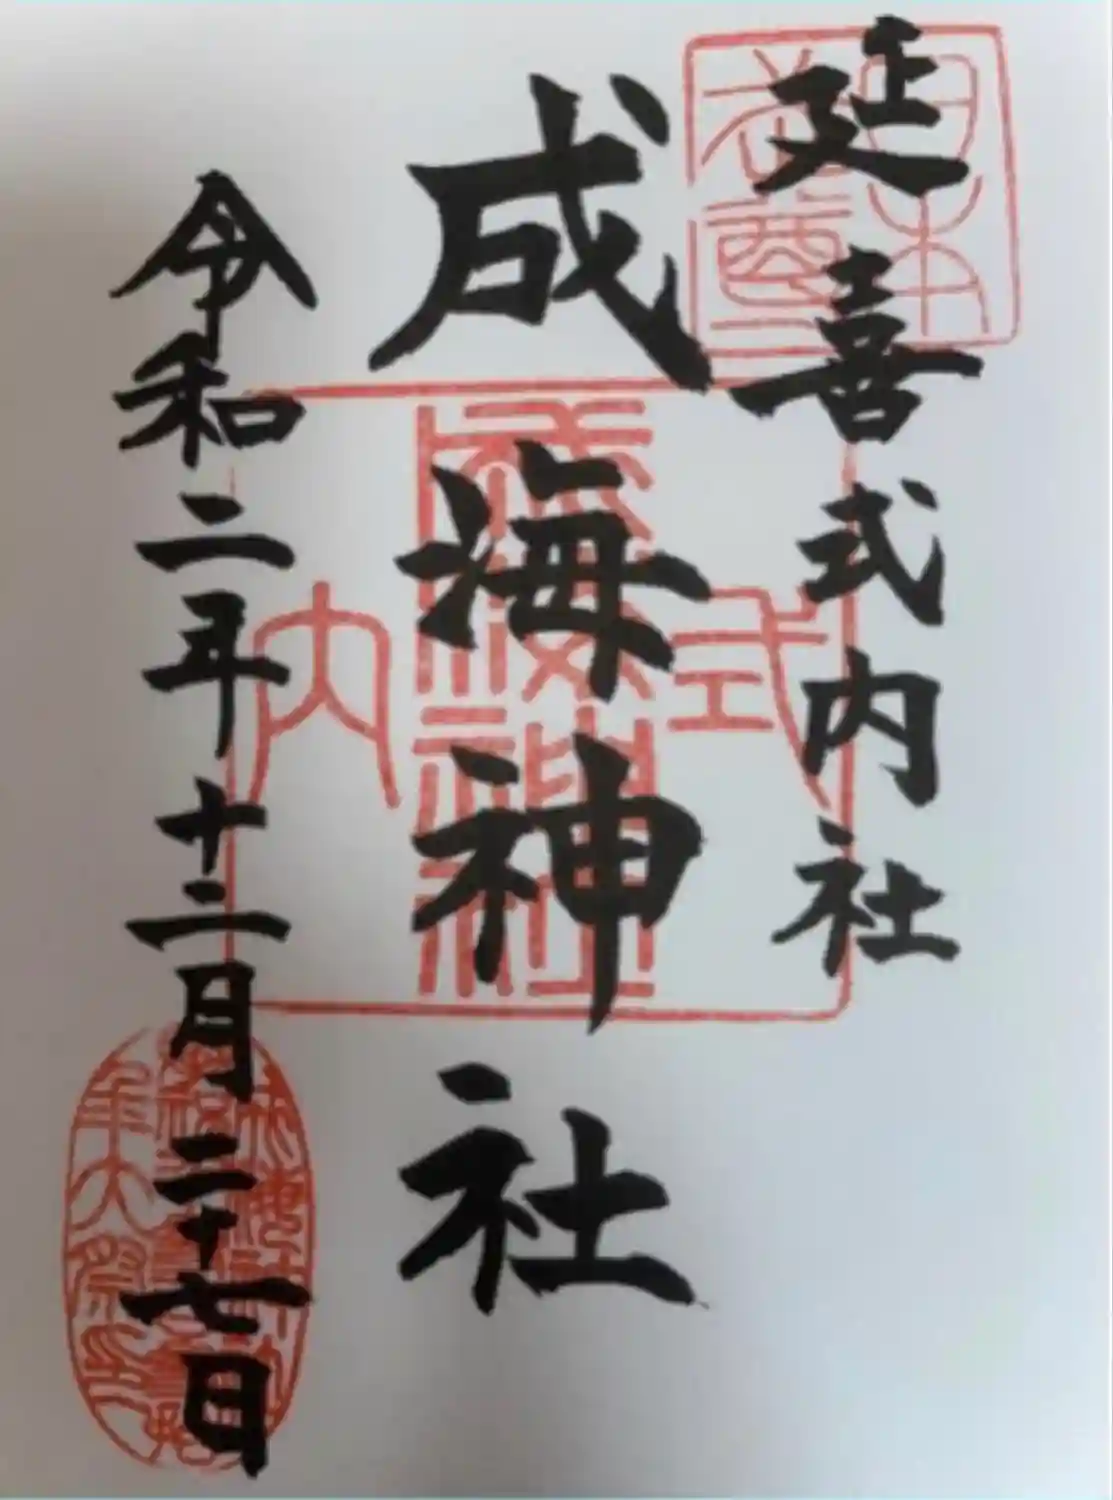 延喜式内社
成海神社
令和二年十二月二十七日
式内
成海神社